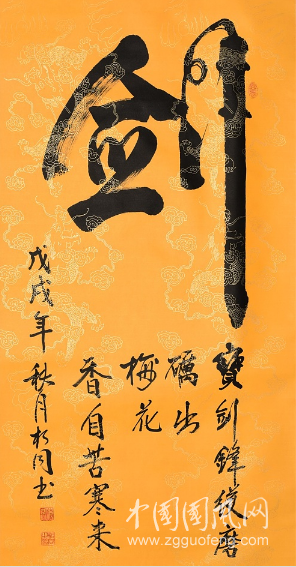 剑
寶剑鋒從磨
礪出
梅花
香自苦寒来
戊戌年秋月书
中國國風网
www.zgguofeng.com